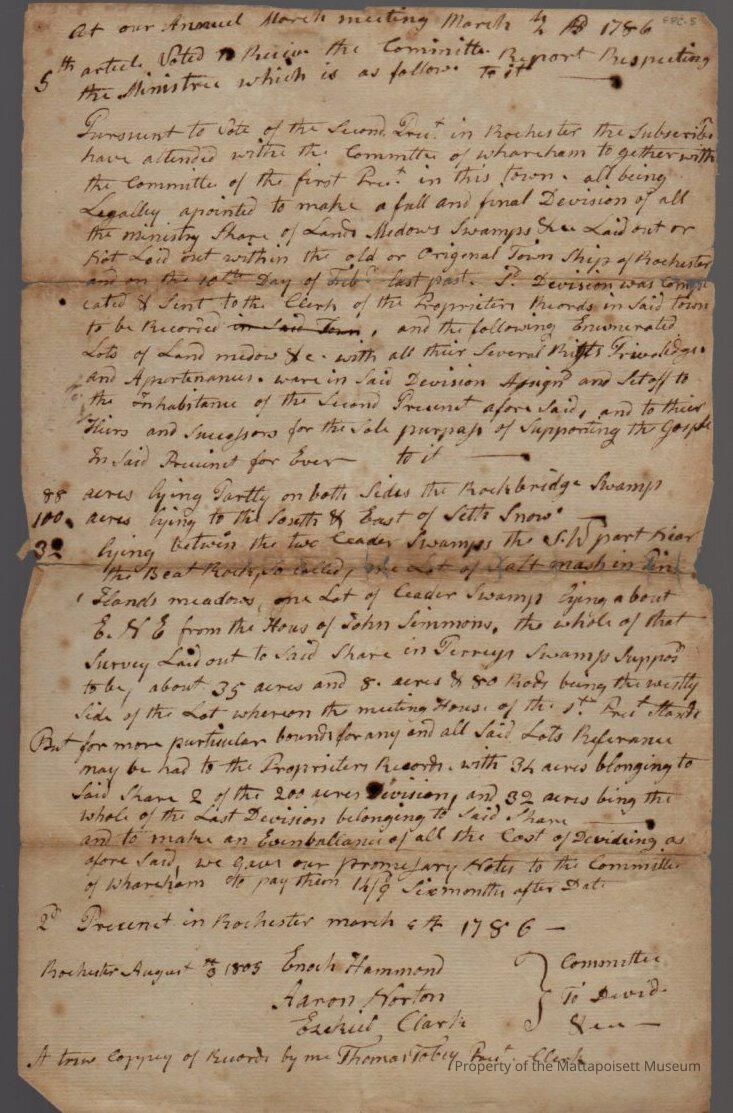 At our Annual March meeting March 1786
EPC-5
5th article Voted to Receive the Committe Report Respecting
the Ministree which is as follows to it
Pursuant to Vote of the Second Prect. in Rochester the Subscribe
have attended withe the Committee of Whareham together with
the Committe of the first Prect. in this town. all being
Legalley apointed to make a full and final Devision of all
the ministry Share of Lands Medows Swamps &cc Laid out or
Not Laid out within the old or Origenal Town Ship of Rochester
and on the 10th Day of Feb. last past. Sd. Devision was
cated & Sent to the Clerk of the Proprieters Records in Said town
to be Recorded in Said Town, and the following Enumerated
Lots of Land medow &c. with all their Several Rights Priveledges
and Apurtenances. ware in Said Devision Asign'd and Set off to
the Inhabitance of the Second Precinct afore Said, and to their
Heirs and Sucessors for the Sole purpass of Supporting the Gosple
In Said Precinct for Ever to it
88 acres lying Partly on both Sides the Rockbridge Swamp
100 acres lying to the South & East of Seth Snows
32 lying betwin the two Ceader Swamps the S.W part Near
the Boat Rock, So Called, one Lot of Salt mash in Pine
Ilands meadows, one Lot of Ceader Swamp lying about
E. N E from the Hous of John Simmons, the whole of that
Survey Laid out to Said Share in Perreys Swamp Suppos'd
to be, about 35 acres and 8. acres & 80 Rods being the westly
Side of the Lot whereon the meeting House of the 1st. Prect Stands
But for more particular bounds for any and all Said Lots Referance
may be had to the Proprieters Records. with 34 acres blonging to
Said Share 2 of the 200 acres Division, and 32 acres bing the
whole of the Last Devision belonging to Said Share
and to make an Evenballance of all the Cost of Devideing as
afore Said, we gave our promesary Notes to the Committe
of Whareham to pay them Six months after Date
2d Precinct in Rochester march 1786
Rochester August 1805 Enoch Hammond
Aaron Norton
Ezekiel Clark
Committee
To Devid
&cc
A true Coppey of Records by me Thomas Tobey Prect. Clerk
Property of the Mattapoisett Museum